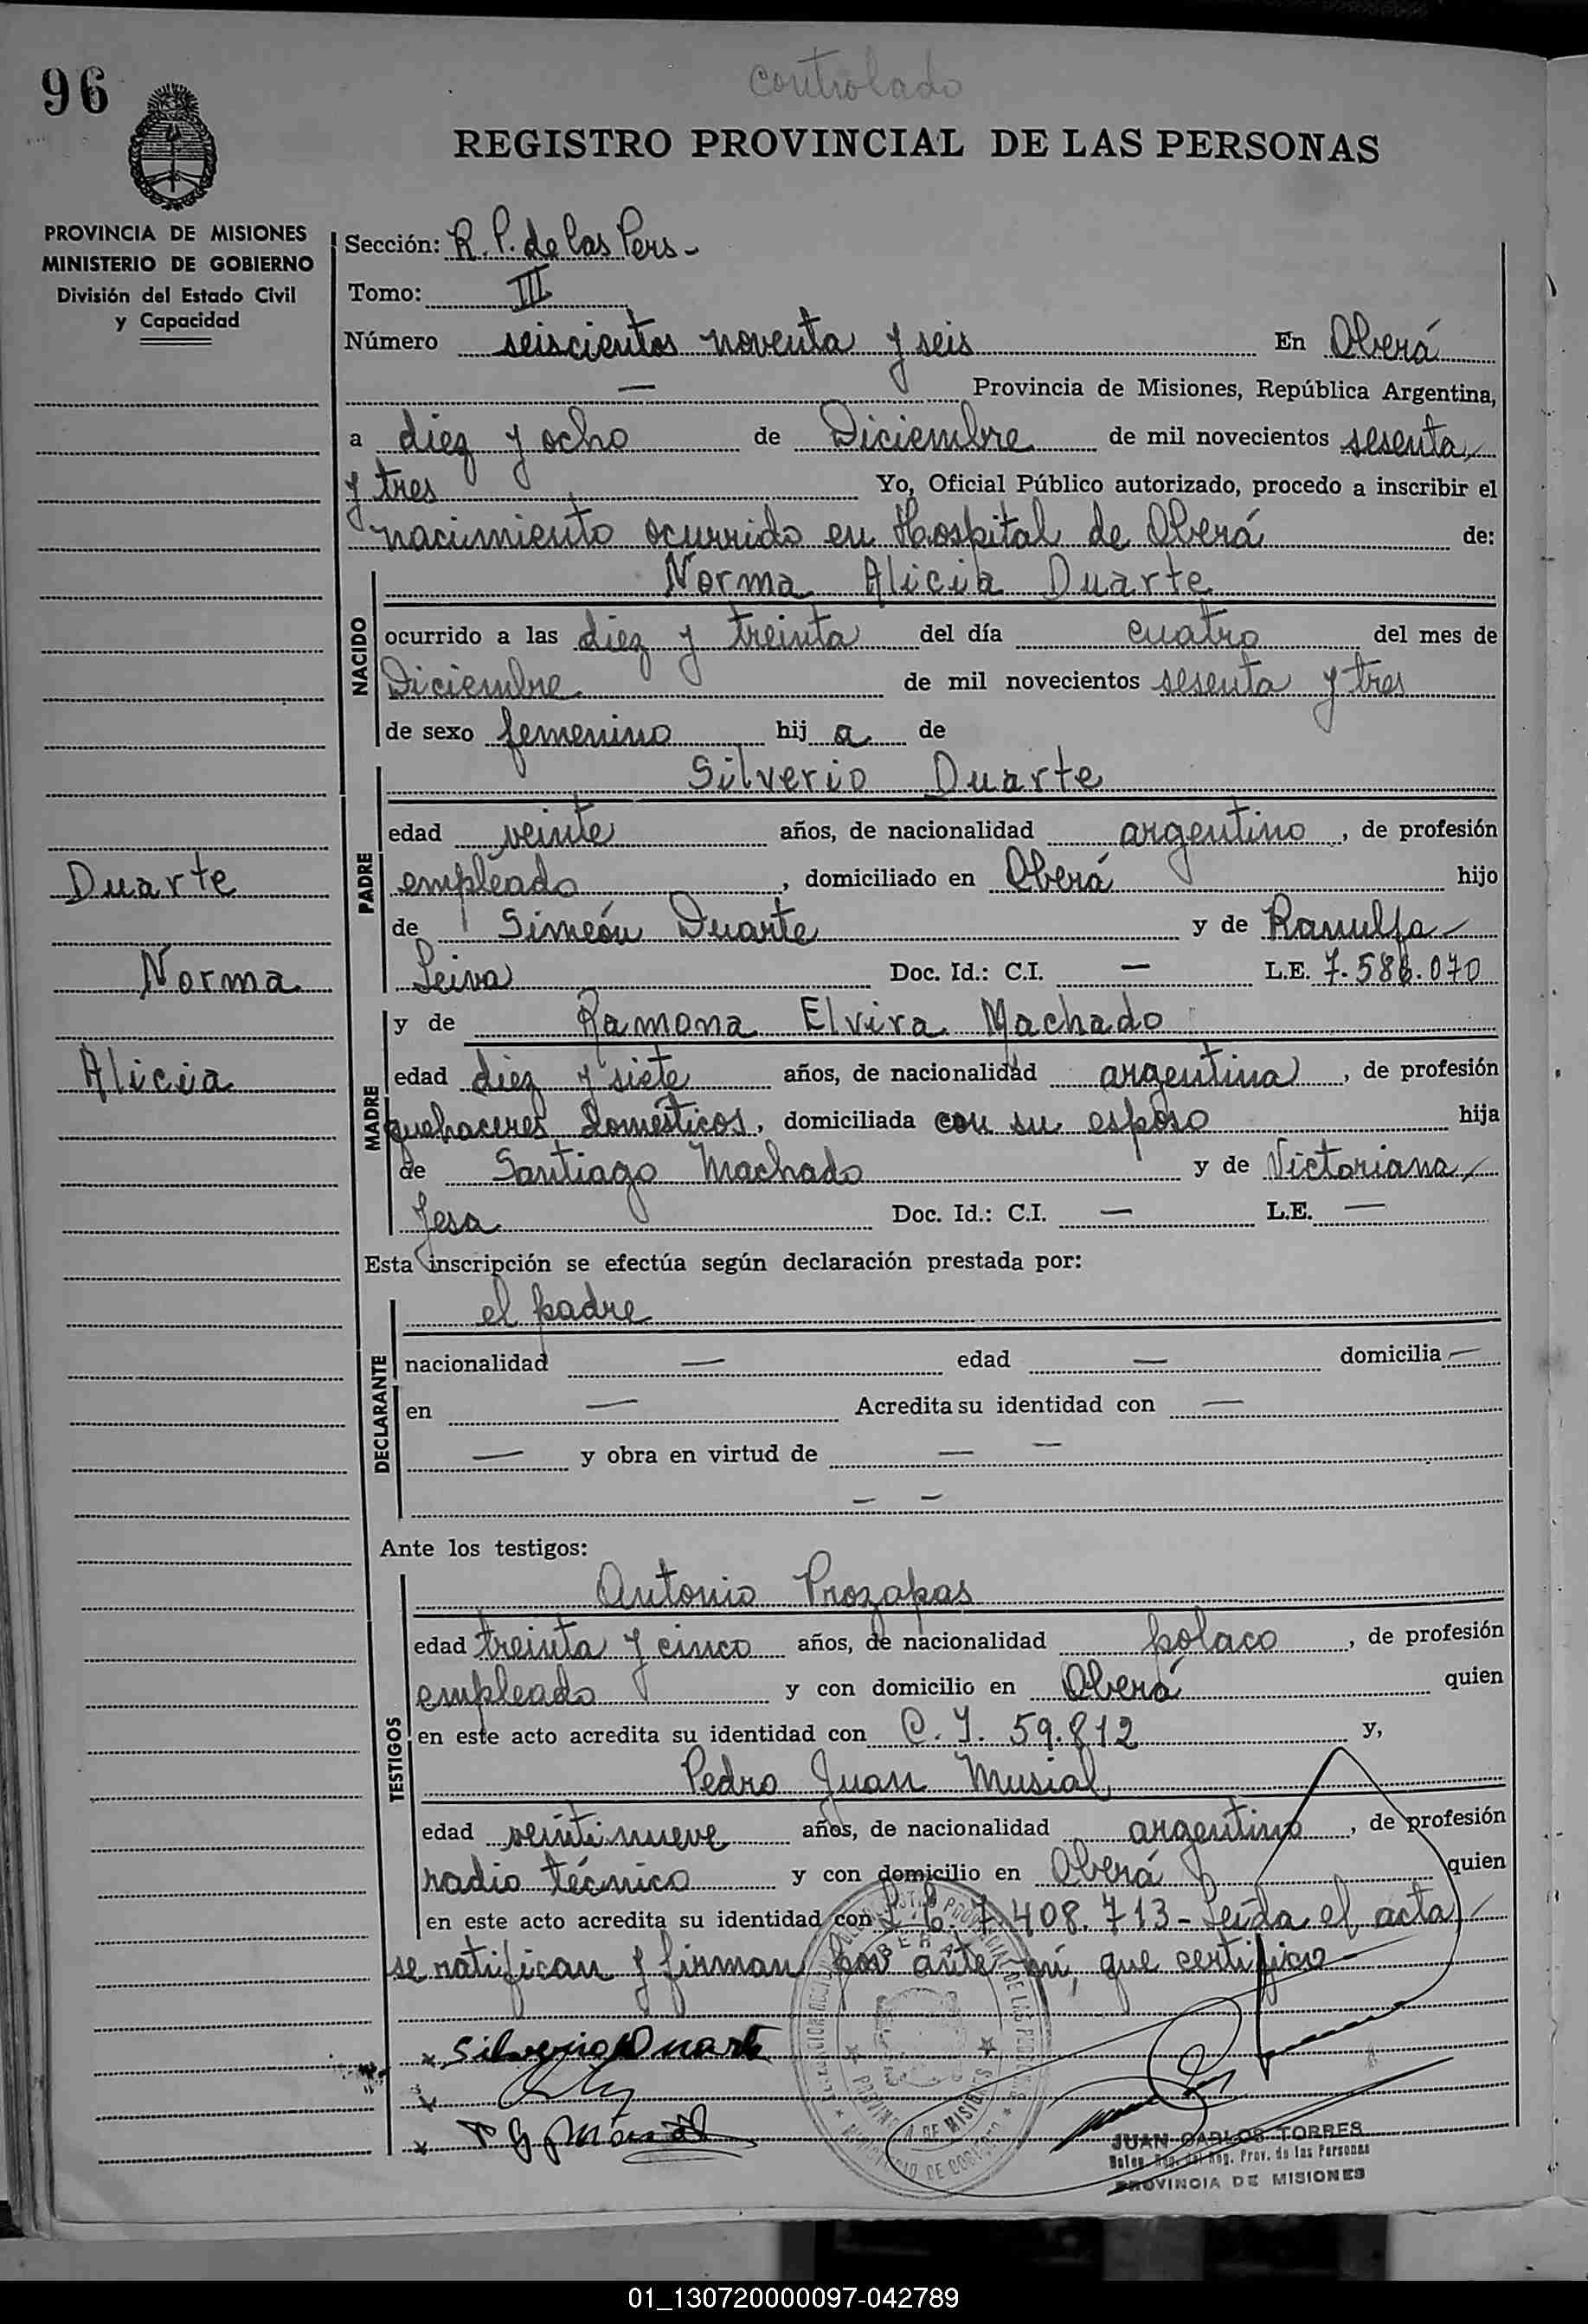 controlado
96
REGISTRO PROVINCIAL DE LAS PERSONAS
PROVINCIA DE MISIONES
MINISTERIO DE GOBIERNO
División del Estado Civil
y Capacidad
Sección: R. P. de las Pers -
Tomo: III
Número seiscientos noventa y seis En Oberá
— Provincia de Misiones, República Argentina,
a diez y ocho de Diciembre de mil novecientos sesenta
y tres Yo, Oficial Público autorizado, procedo a inscribir el
nacimiento ocurrido en Hospital de Oberá de:
NACIDO
Norma Alicia Duarte
ocurrido a las diez y treinta del día cuatro del mes de
Diciembre de mil novecientos sesenta y tres
de sexo femenino hij a de
PADRE
Silverio Duarte
edad veinte años, de nacionalidad argentino, de profesión
empleado, domiciliado en Oberá hijo
de Simeón Duarte y de Ranulfa
Leiva Doc. Id.: C.I. — L.E. 7.586.070
Duarte
Norma
Alicia
MADRE
y de Ramona Elvira Machado
edad diez y siete años, de nacionalidad argentina, de profesión
quehaceres domésticos, domiciliada con su esposo hija
de Santiago Machado y de Victoriana
Jesa Doc. Id.: C.I. — L.E. —
Esta inscripción se efectúa según declaración prestada por:
DECLARANTE
el padre
nacionalidad — edad — domicilia —
en — Acredita su identidad con —
— y obra en virtud de — —
— —
Ante los testigos:
TESTIGOS
Antonio Prozapas
edad treinta y cinco años, de nacionalidad polaco, de profesión
empleado y con domicilio en Oberá quien
en este acto acredita su identidad con C. I. 59.812 y,
Pedro Juan Musial
edad veintinueve años, de nacionalidad argentino, de profesión
radio técnico y con domicilio en Oberá quien
en este acto acredita su identidad con L. E. 7.408.713 - Leída el acta
se ratifican y firman por ante mí, que certifico
x Silverio Duarte
x
x
OBERA
PROVINCIA DE MISIONES
MINISTERIO DE GOBIERNO
JUAN CARLOS TORRES
Reg. Prov. de las Personas
PROVINCIA DE MISIONES
01_130720000097-042789